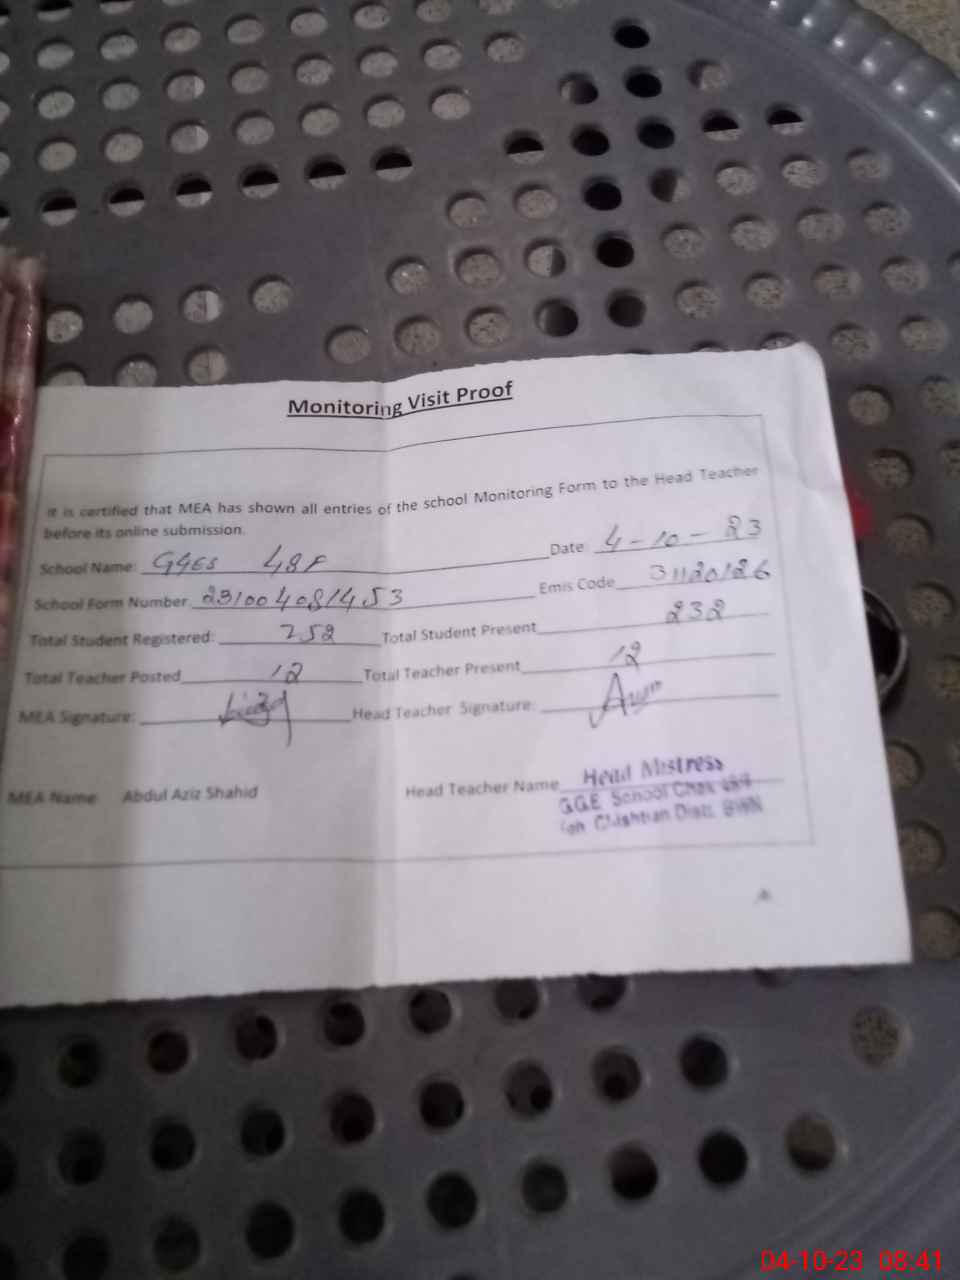 Monitoring Visit Proof
It is certified that MEA has shown all entries of the school Monitoring Form to the Head Teacher
before its online submission.
School Name: GGES 48F Date 4-10-23
School Form Number 231004081453 Emis Code 31120126
Total Student Registered: 252 Total Student Present 232
Total Teacher Posted 12 Total Teacher Present 12
MEA Signature: Head Teacher Signature:
MEA Name Abdul Aziz Shahid Head Teacher Name Head Mistress
G.G.E School Chak
Chishtian Distt. BWN
04-10-23 08:41